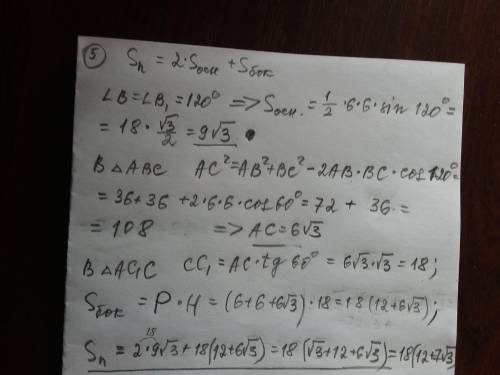 5 Sп = 2·Sосн + Sбок
∠B=∠B₁=120° => Sосн. = 1/2 ·6·6·sin 120°=
= 18 · √3/2 = 9√3
В △ABC AC²=AB²+BC²-2AB·BC·cos120°=
=36+36 +2·6·6·cos60°=72 + 36 =
= 108 => AC=6√3
В △AC₁C CC₁=AC·tg 60° = 6√3·√3 = 18;
Sбок = P·H = (6+6+6√3)·18=18(12+6√3);
18
Sп = 2·9√3+18(12+6√3)=18(√3+12+6√3)=18(12+7√3)